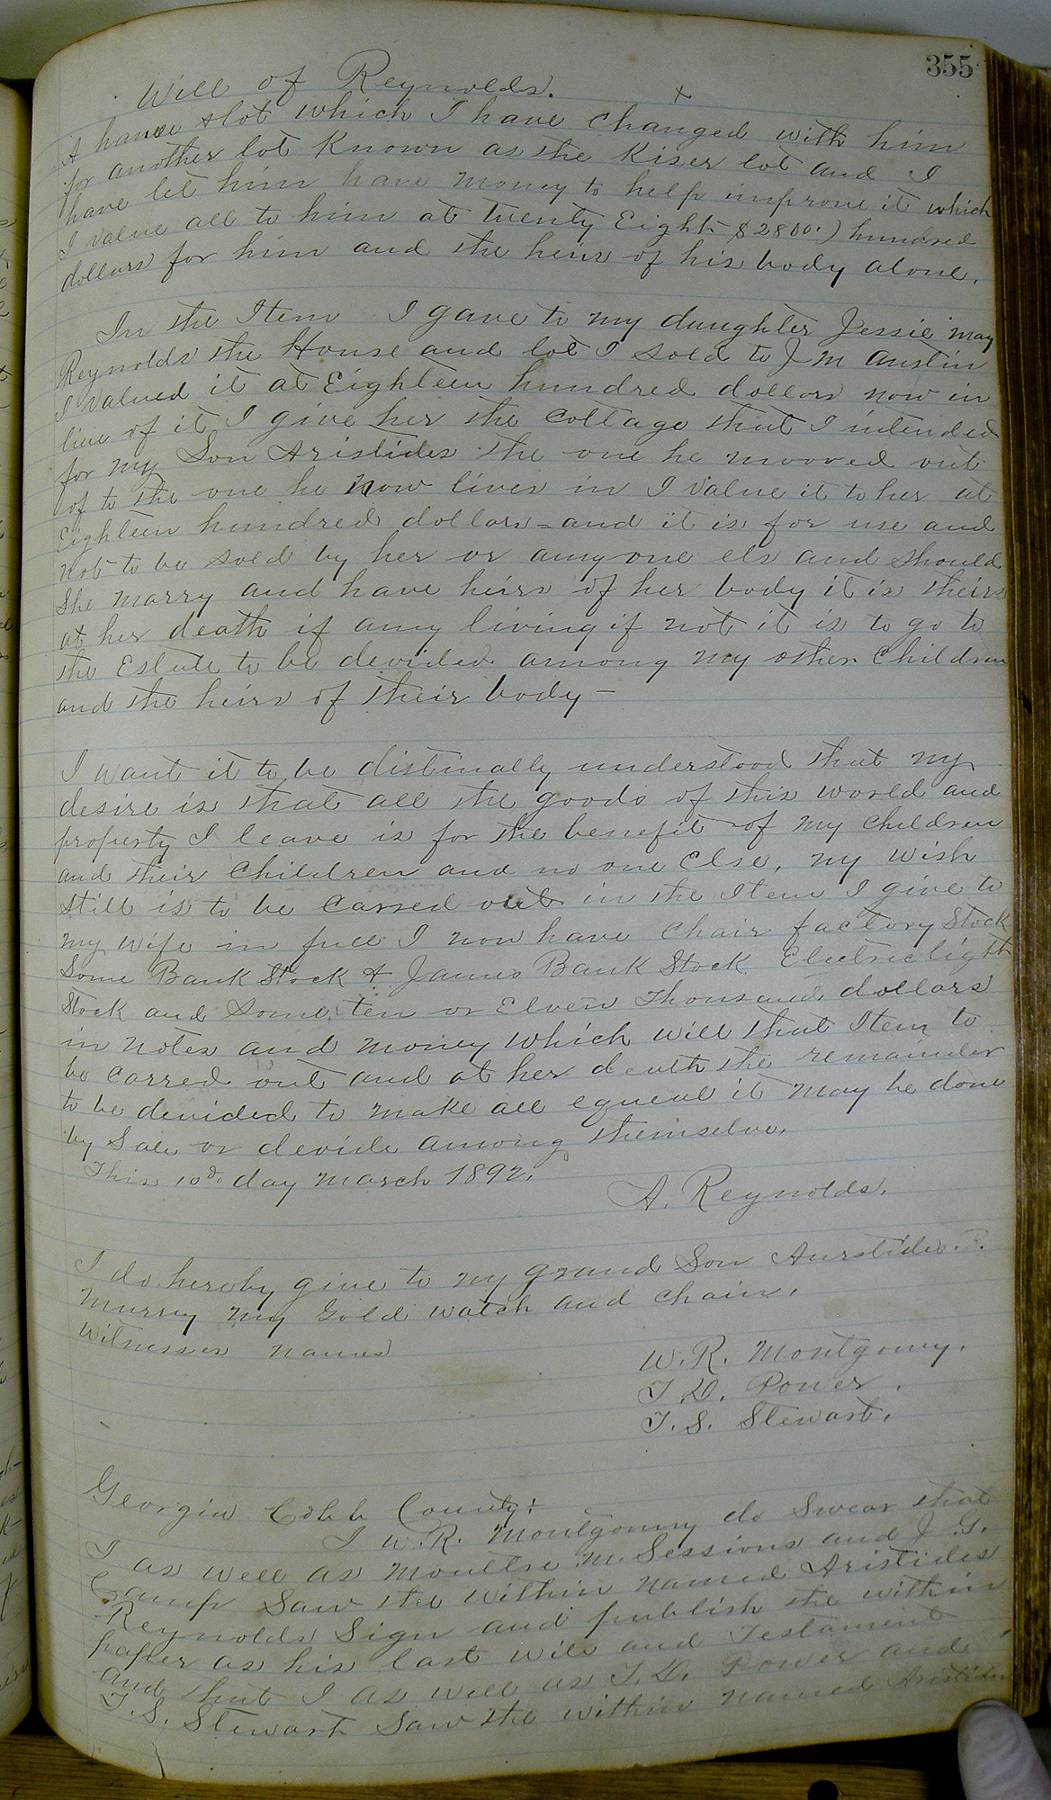 355
Will of Reynolds.
A house & lot which I have changed with him
for another lot Known as the Kiser lot and I
have let him have money to help improve it which
I value all to him at Twenty Eight $2800.) hundred
dollars for him and the heirs of his body alone.
In the Item I gave to my daughter Jessie May
Reynolds the House and lot I sold to J M Austin
I valued it at Eighteen hundred dollars now in
lieu of it I give her the Cottage that I intended
for my Son Aristides the one he mooved out
of to the one he now lives in I value it to her at
Eighteen hundred dollars = and it is for use and
not to be sold by her or any one els and should
She marry and have heirs of her body it is theirs
at her death if any living if not it is to go to
the Estate to be devided among my other Children
and the heirs of their body —
I want it to be distinally understood that my
desire is that all the goods of this world and
property I leave is for the benefit of my Children
and their Children and no one Else, my wish
still is to be Carred out in the Item I give to
my wife in full I now have Chair factory Stock
Some Bank Stock & James Bank Stock Electric light
Stock and Some ten or Elven Thousand dollars
in notes and money which will that Item to
be carred out and at her death the remainder
to be devided to make all equeal it may be done
by Sale or devide among themselves.
This 10d. day March 1892.
A. Reynolds.
I do hereby give to my grand Son Aurstides
Murrey my Gold watch and chain.
Witnesses names
W. R. Montgomry.
T. D. Power.
T. S. Stewart.
Georgia Cobb County:
I W. R. Montgomry do Swear that
I as well as Moultre M. Sessions and J. G.
Camp Saw the within named Aristides
Reynolds Sign and publish the within
paper as his last will and Testament
and that I as well as T. D. Power and
T. S. Stewart Saw the within named Aristides